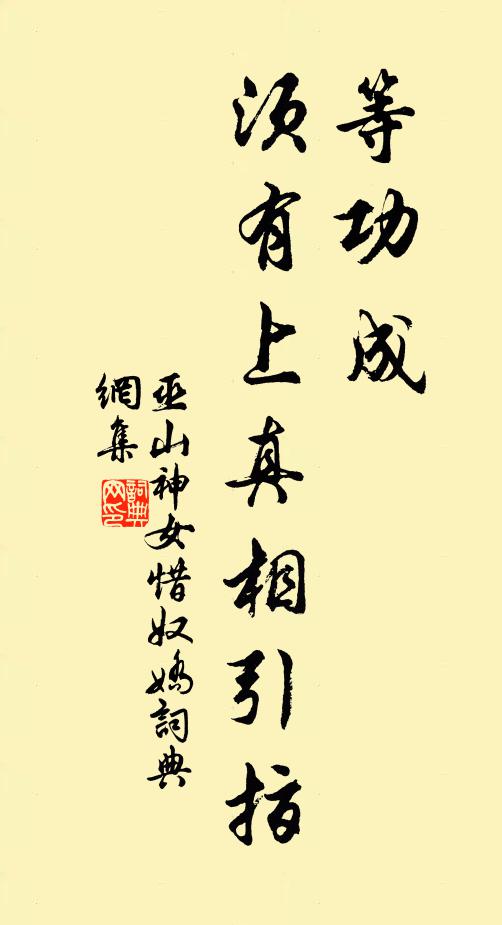 等功成
須有上真相引指
巫山神女惜奴嬌詞典
網集
詞典
网印